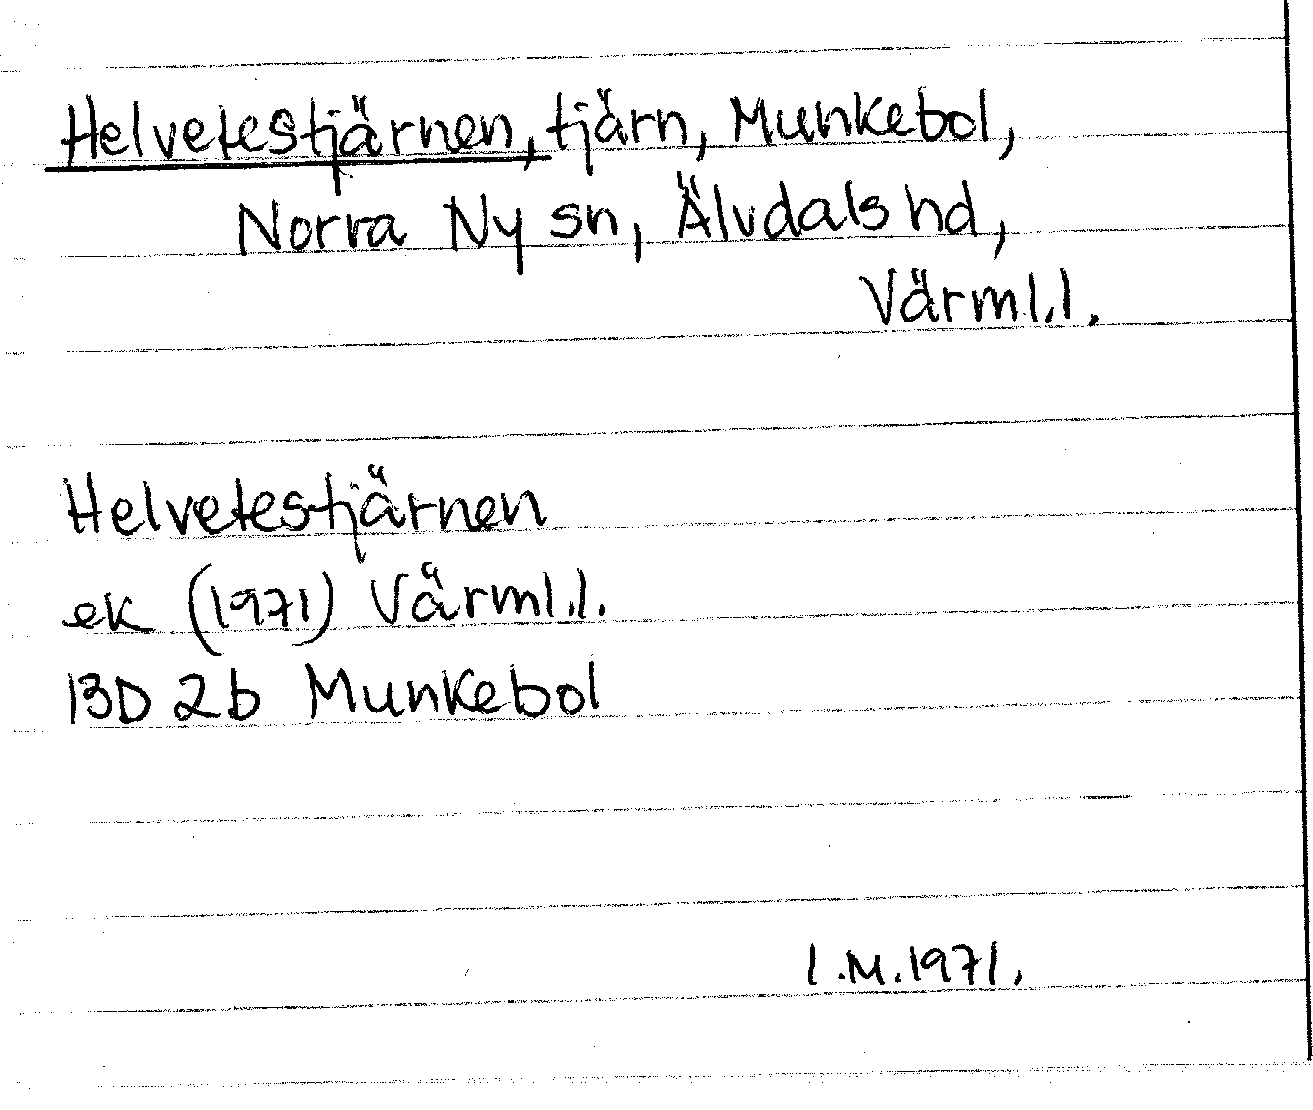 Helvetestjärnen, tjärn, Munkebol,
Norra Ny sn, Älvdals hd,
Värml.l.
Helvetestjärnen
ek (1971) Värml.l.
13D 2b Munkebol
I.M.1971.